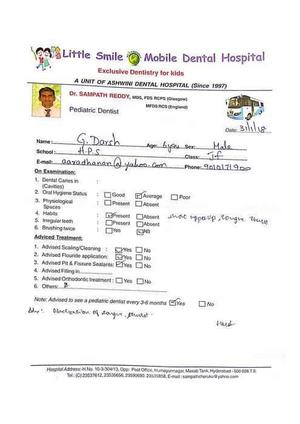 Little Smile Mobile Dental Hospital
Exclusive Dentistry for kids
A UNIT OF ASHWINI DENTAL HOSPITAL (Since 1997)
Dr. SAMPATH REDDY, MDS, FDS RCPS (Glasgow)
MFDS RCS (England)
Pediatric Dentist
Date: 3/1/18
Name: G. Darsh Age: 6 you Sex: Male
School: H.P.S Class: If
E-mail: aaradhanan@yahoo.com Phone: 9010171900
On Examination:
1. Dental Caries in (Cavities)
2. Oral Hygiene Status : Good Average Poor
3. Physiological Spaces : Present Absent
4. Habits : Present Absent
5. Irregular teeth : Present Absent
6. Brushing twice : Yes No
Adviced Treatment:
1. Advised Scaling/Cleaning : Yes No
2. Advised Flouride application: Yes No
3. Advised Pit & Fissure Sealants: Yes No
4. Advised Filling in
5. Advised Orthodontic treatment : Yes No
6. Others:
Note: Advised to see a pediatric dentist every 3-6 months Yes No
Hospital Address: H.No. 10-3-304/13, Opp. Post Office, Humayunnagar, Masab Tank, Hyderabad - 500 028 T.S.
Tel: (C) 23537612, 23535656, 23590693, 23315858, E-mail: sampathcheruku@yahoo.com